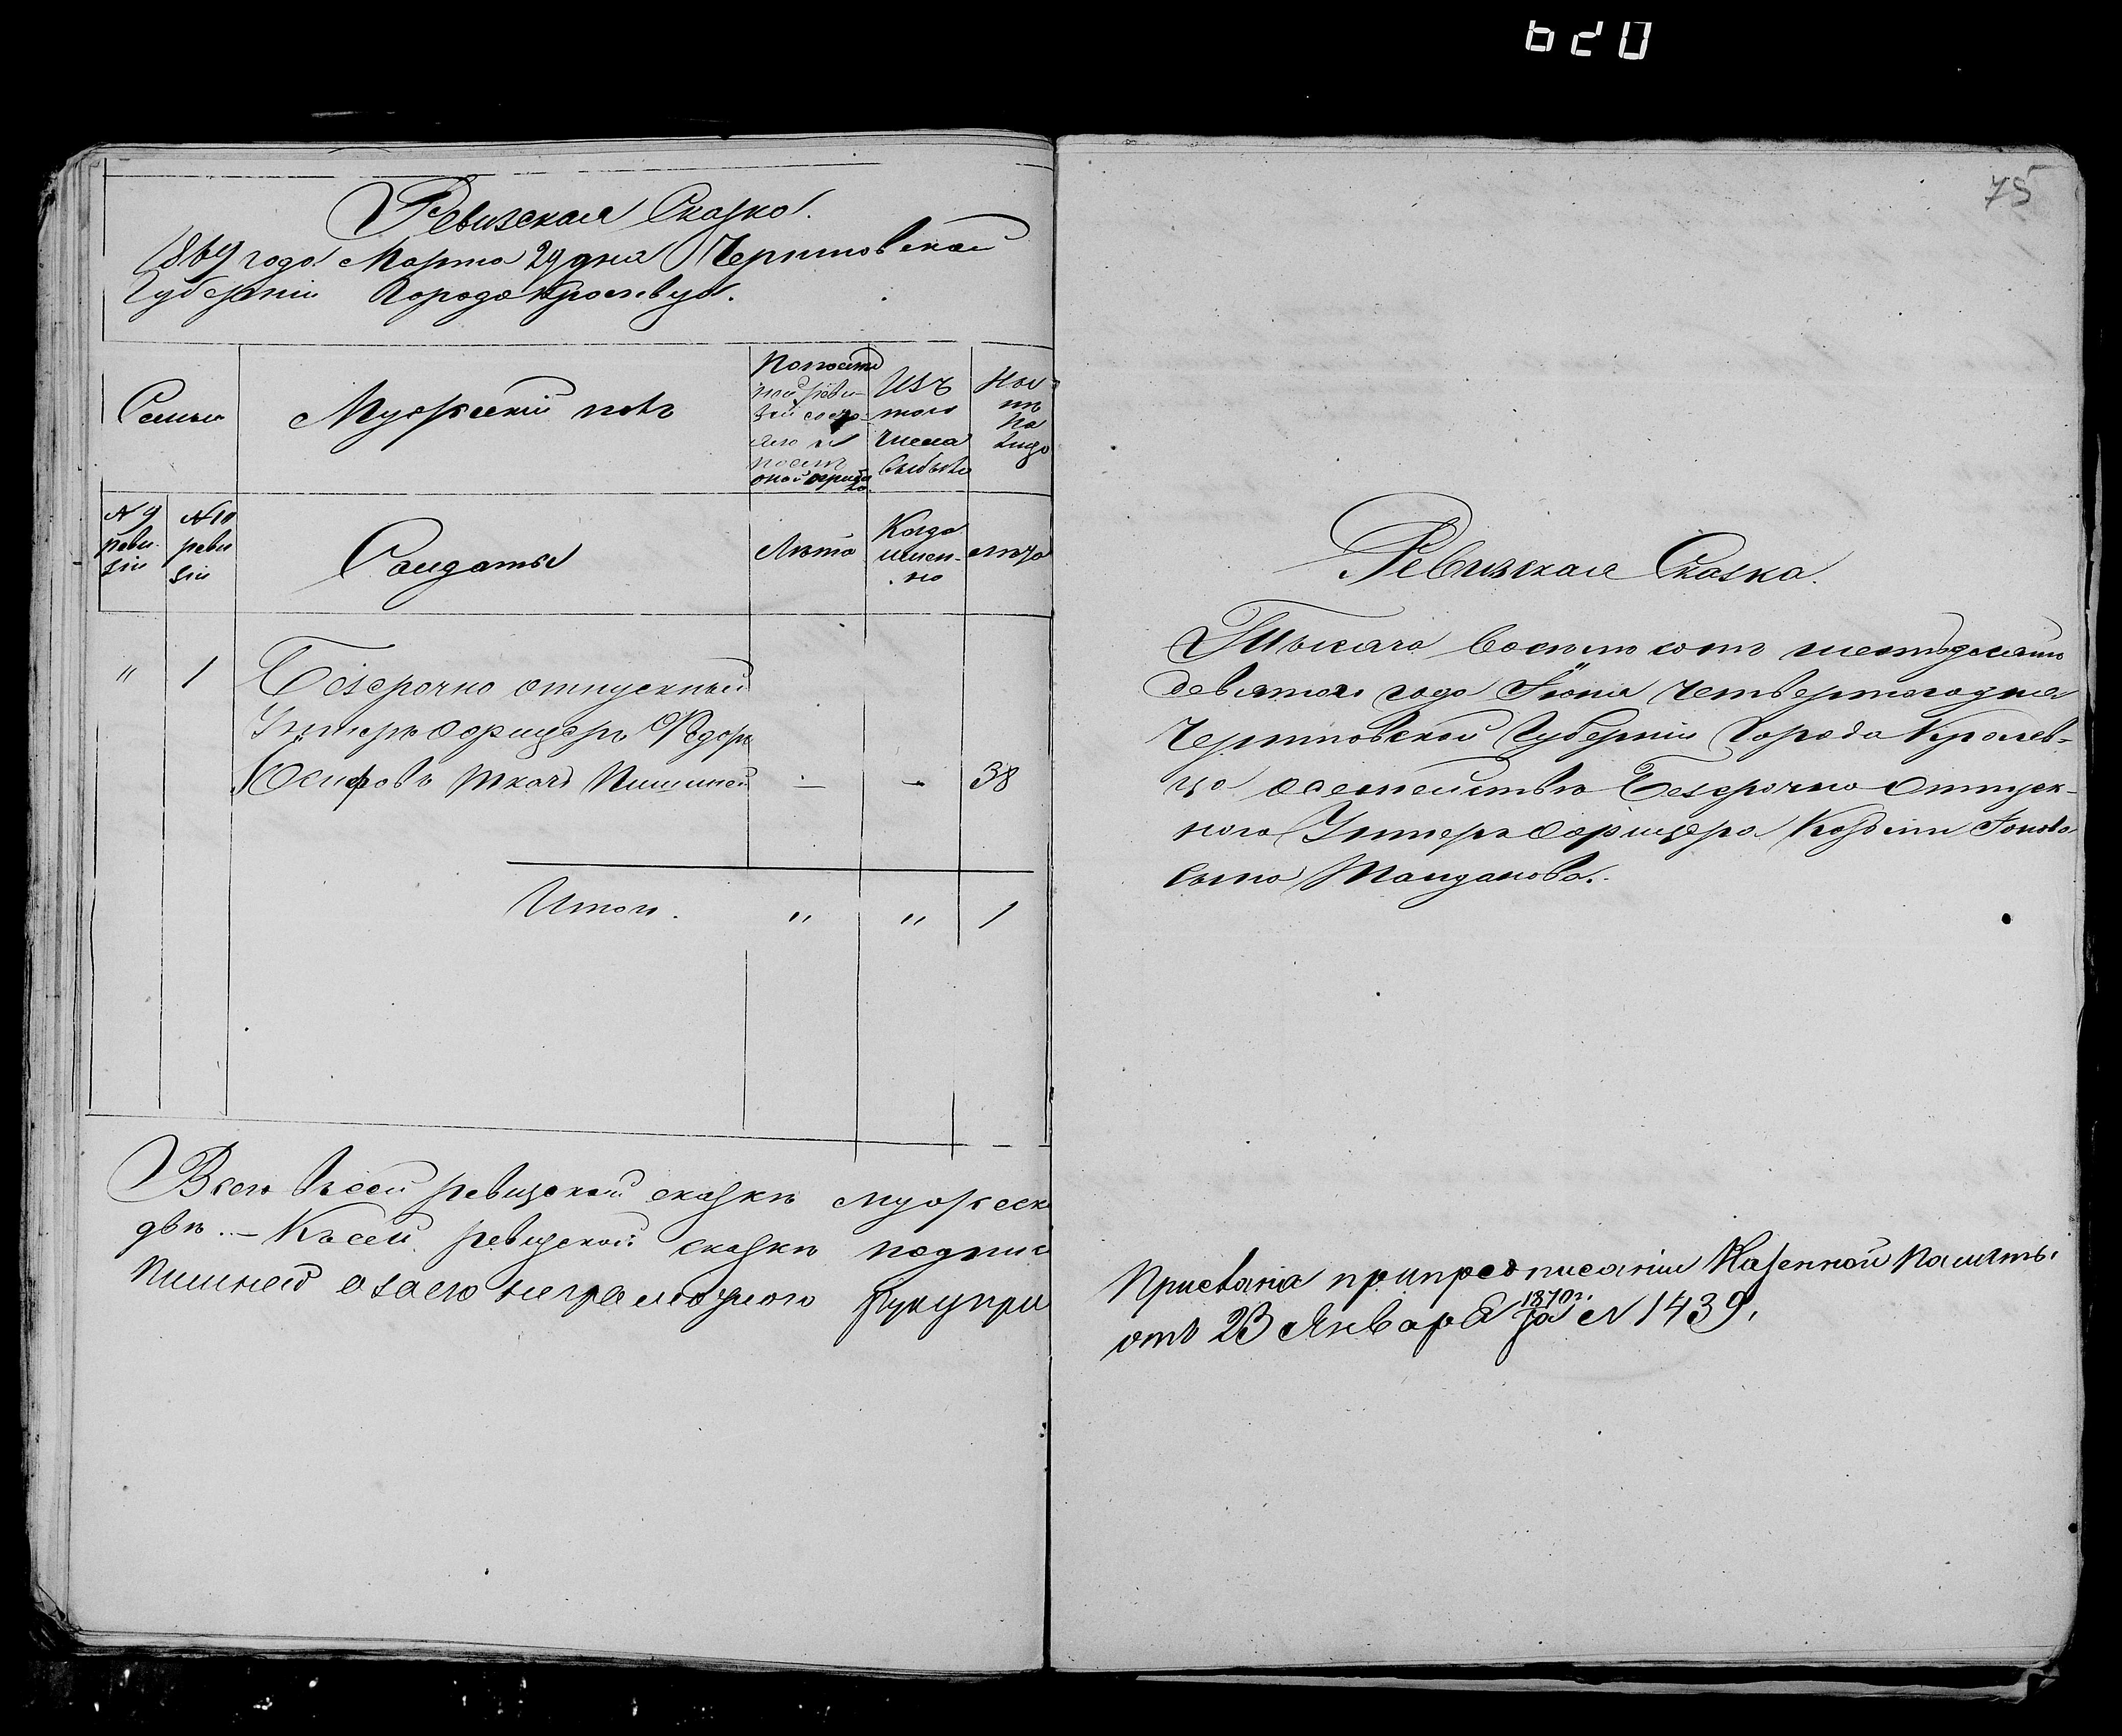 620
Ревизская Сказка.
1869 года Марта 29 дня Черниговской
Губерніи Города Кролевца.
Семьи
Мужескій полъ
По послѣд
ней реви-
зіи состо
яло и
послѣ
оной прибы
ло.
Изъ
того
числа
выбыло
Ны
нѣ
на
лицо
№ 9
реви-
зіи
№ 10
реви
зіи
Солдаты
Лѣта
Когда
имен-
но
лѣта
" 1 Безсрочно отпускный
Унтеръ Офицеръ Федоръ
Осиповъ Ткачъ Пишней — — 38
Итого. " " 1
Всего въ сей ревизской сказкѣ мужеск
двѣ. — Къ сей ревизской сказкѣ подпис
Пишней а за его неграмотного руку при
75
Ревизская Сказка.
Тысяча восемь сотъ шестьдесятъ
девятого года Іюня четвертого дня
Черниговской Губерніи Города Кролев-
ца о семействѣ Безсрочно Отпуск-
ного Унтеръ Офицера Козьми Іонова
сына
Прислана при предписаніи Казенной Палаты
отъ 23 Января 1870 г. за № 1439.